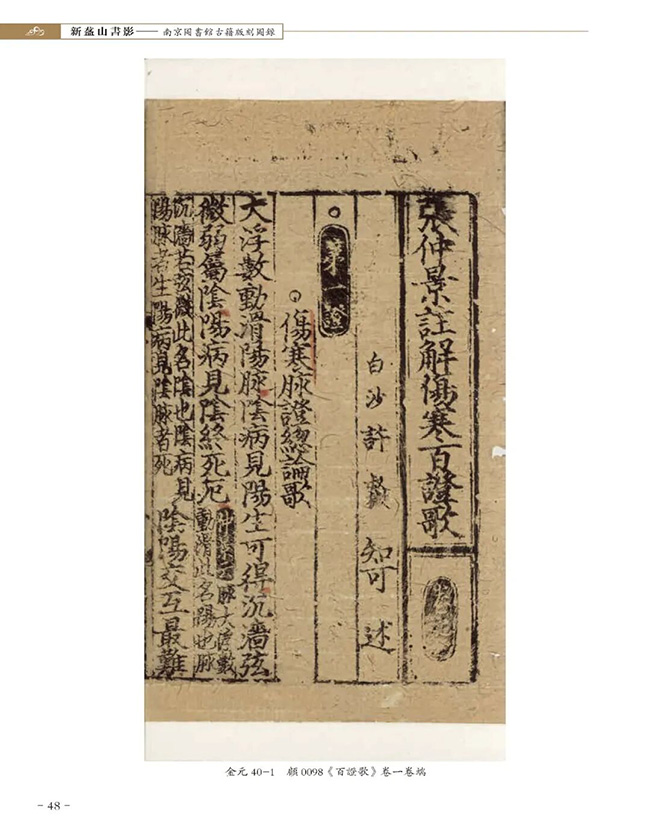 新盋山書影——南京圖書館古籍版刻圖錄
張仲景註解傷寒百證歌
白沙許叔微知可述
第一證
傷寒脉證緫論歌
大浮數動滑陽脉陰病見陽生可得沉濇弦
微弱屬陰陽病見陰終死厄
仲景云脉大浮數
動滑此名陽也脉
沉濇弱弦微此名陰也陰病見
陽脉者生陽病見陰脉者死
陰陽交互最難
金元 40-1 顧0098《百證歌》卷一卷端
- 48 -